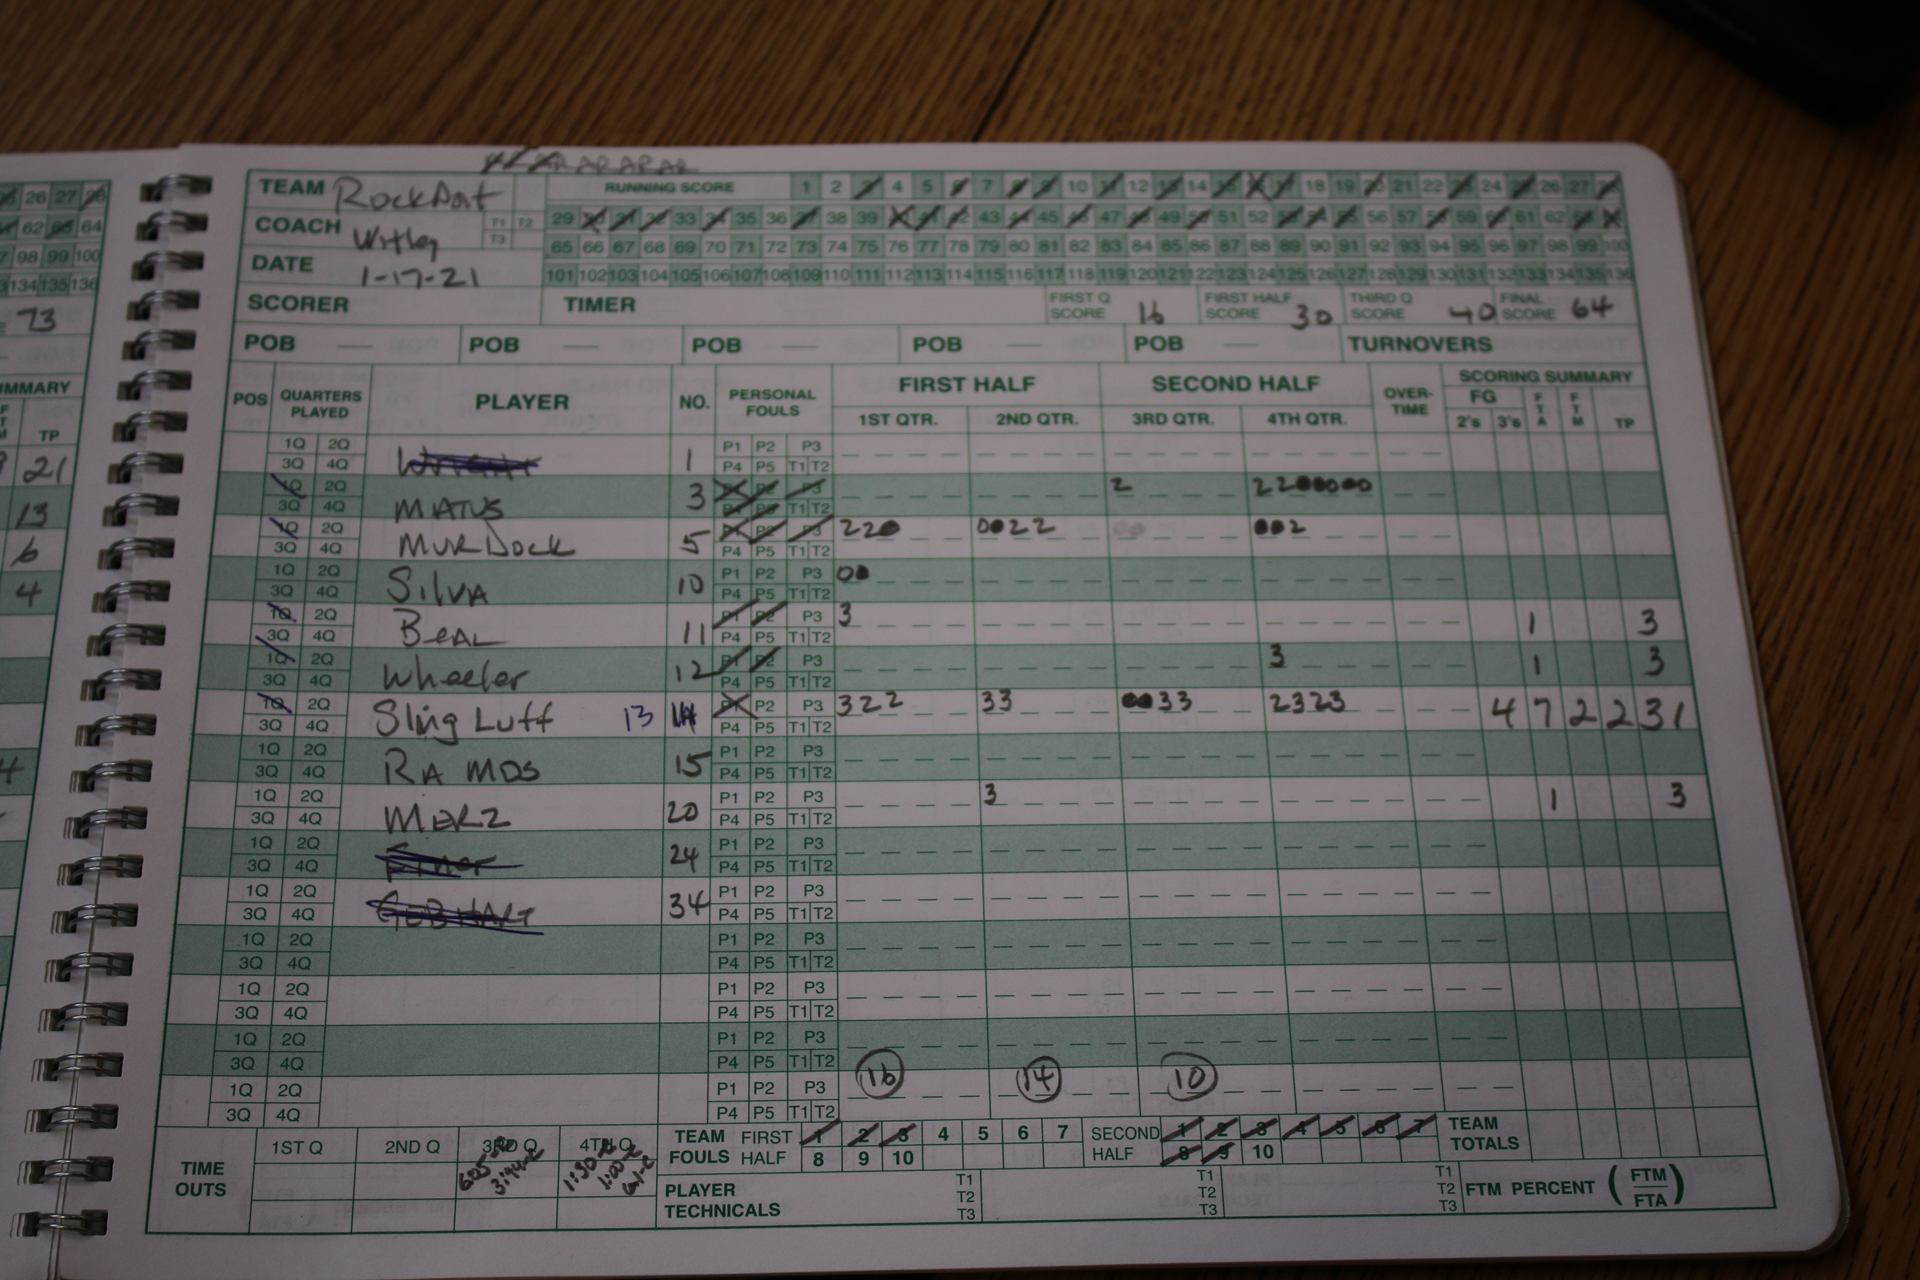 TEAM RockPort
RUNNING SCORE 1 2 3 4 5 6 7 8 9 10 11 12 13 14 15 16 17 18 19 20 21 22 23 24 25 26 27 28
COACH Witley T1 T2 T3
29 30 31 32 33 34 35 36 37 38 39 40 41 42 43 44 45 46 47 48 49 50 51 52 53 54 55 56 57 58 59 60 61 62 63 64
65 66 67 68 69 70 71 72 73 74 75 76 77 78 79 80 81 82 83 84 85 86 87 88 89 90 91 92 93 94 95 96 97 98 99 100
DATE 1-17-21
101 102 103 104 105 106 107 108 109 110 111 112 113 114 115 116 117 118 119 120 121 122 123 124 125 126 127 128 129 130 131 132 133 134 135 136
SCORER TIMER FIRST Q SCORE 16 FIRST HALF SCORE 30 THIRD Q SCORE 40 FINAL SCORE 64
POB — POB — POB — POB — POB — TURNOVERS
POS QUARTERS PLAYED PLAYER NO. PERSONAL FOULS FIRST HALF SECOND HALF OVER-TIME SCORING SUMMARY
1ST QTR. 2ND QTR. 3RD QTR. 4TH QTR. FG 2's 3's FTA FTM TP
1Q 2Q P1 P2 P3
3Q 4Q 1 P4 P5 T1 T2
1Q 2Q P1 P2 P3 2 22
3Q 4Q MATUS 3 P4 P5 T1 T2
1Q 2Q P1 P2 P3 220 0022 002
3Q 4Q MURDOCK 5 P4 P5 T1 T2
1Q 2Q P1 P2 P3 00
3Q 4Q SILVA 10 P4 P5 T1 T2
1Q 2Q P1 P2 P3 3 1 3
3Q 4Q BEAL 11 P4 P5 T1 T2
1Q 2Q P1 P2 P3 3 1 3
3Q 4Q Wheeler 12 P4 P5 T1 T2
1Q 2Q P1 P2 P3 322 33 0033 2323 4 7 2 2 31
3Q 4Q Sling Luff 13 14 P4 P5 T1 T2
1Q 2Q P1 P2 P3
3Q 4Q RAMOS 15 P4 P5 T1 T2
1Q 2Q P1 P2 P3 3 1 3
3Q 4Q MERZ 20 P4 P5 T1 T2
1Q 2Q P1 P2 P3
3Q 4Q 24 P4 P5 T1 T2
1Q 2Q P1 P2 P3
3Q 4Q GEBHART 34 P4 P5 T1 T2
1Q 2Q P1 P2 P3
3Q 4Q P4 P5 T1 T2
1Q 2Q P1 P2 P3
3Q 4Q P4 P5 T1 T2
1Q 2Q P1 P2 P3
3Q 4Q P4 P5 T1 T2
1Q 2Q P1 P2 P3 16 14 10
3Q 4Q P4 P5 T1 T2
TIME OUTS 1ST Q 2ND Q 3RD Q 4TH Q
3:44 1:30 1:00
TEAM FOULS FIRST HALF 1 2 3 4 5 6 7 8 9 10 SECOND HALF 1 2 3 4 5 6 7 8 9 10 TEAM TOTALS
PLAYER TECHNICALS T1 T2 T3 T1 T2 T3 T1 T2 T3 FTM PERCENT (FTM/FTA)
26 27 28
62 63 64
98 99 100
134 135 136
73
SUMMARY
TP
21
13
6
4